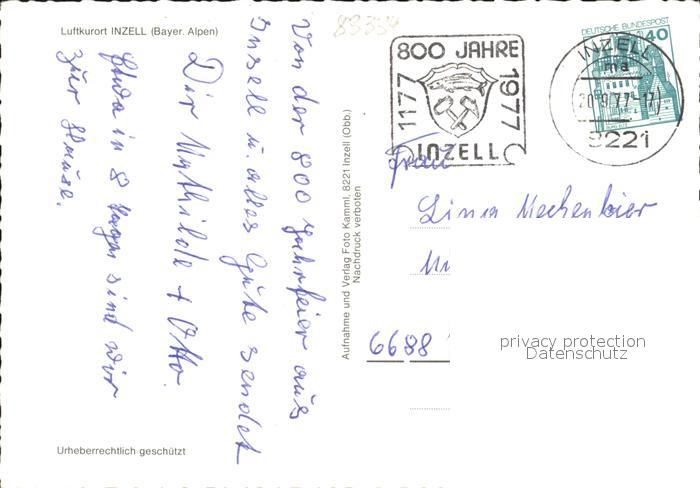 Luftkurort INZELL (Bayer. Alpen)
83334
Von der 800 Jahrfeier aus
Inzell u. alles Gute sendet
Dir Mathilde + Otto.
in 8 Tagen sind wir
zur Hause.
Urheberrechtlich geschützt
Aufnahme und Verlag Foto Kamml, 8221 Inzell (Obb.)
Nachdruck verboten
800 JAHRE
1177 1977
INZELL
DEUTSCHE BUNDESPOST
40
INZELL
ma
20.9.77-17
8221
Frau
6688
privacy protection
Datenschutz